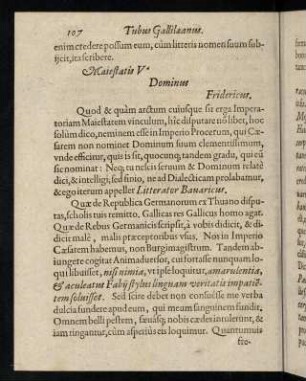 107 Tubus Gallilæanus.
enim credere possum eum, cùm litteris nomen suum sub-
ijcit, ita scribere.
Maiestatis V.ª
Dominus
Fridericus.
Quod & quàm arctum cuiusque sit erga Impera-
toriam Maiestatem vinculum, hîc disputare nõ liber, hoc
solùm dico, neminem esse in Imperio Procerum, qui Cæ-
sarem non nominet Dominum suum clementissimum,
vnde efficitur, quis is sit, quocunq; tandem gradu, qui eũ
sic nominat: Neq; tu nescis seruum & Dominum relatè
dici, & intelligi, sed sino, ne ad Dialecticam prolabamur,
& ego iterum appeller Litterator Bauaricus.
Quæ de Republica Germanorum ex Thuano disputas,
scholis tuis remitto. Gallicas res Gallicus homo agat.
Quæ de Rebus Germanicis scripsit, à vobis didicit, & di-
dicit malè, malis præceptoribus vsus. Nos in Imperio
Cæsarem habemus, non Burgimagistrum. Tandem ab-
iungere cogitat Animaduersor, cui fortasse nunquam lo-
qui libuisset, nisi nimia, vt ipse loquitur, amarulentia,
& aculeatus Fabij stylus linguam veritatis impatiẽ-
tem soluisset. Seid scire debet non consuisse me verba
dulcia fundere apud eum, qui meum sanguinem fundit.
Omnem belli pestem, sæuasq; nobis cædes intulerunt, &
iam tingantur, cùm asperiùs eis loquimur. Quantumuis
fre-